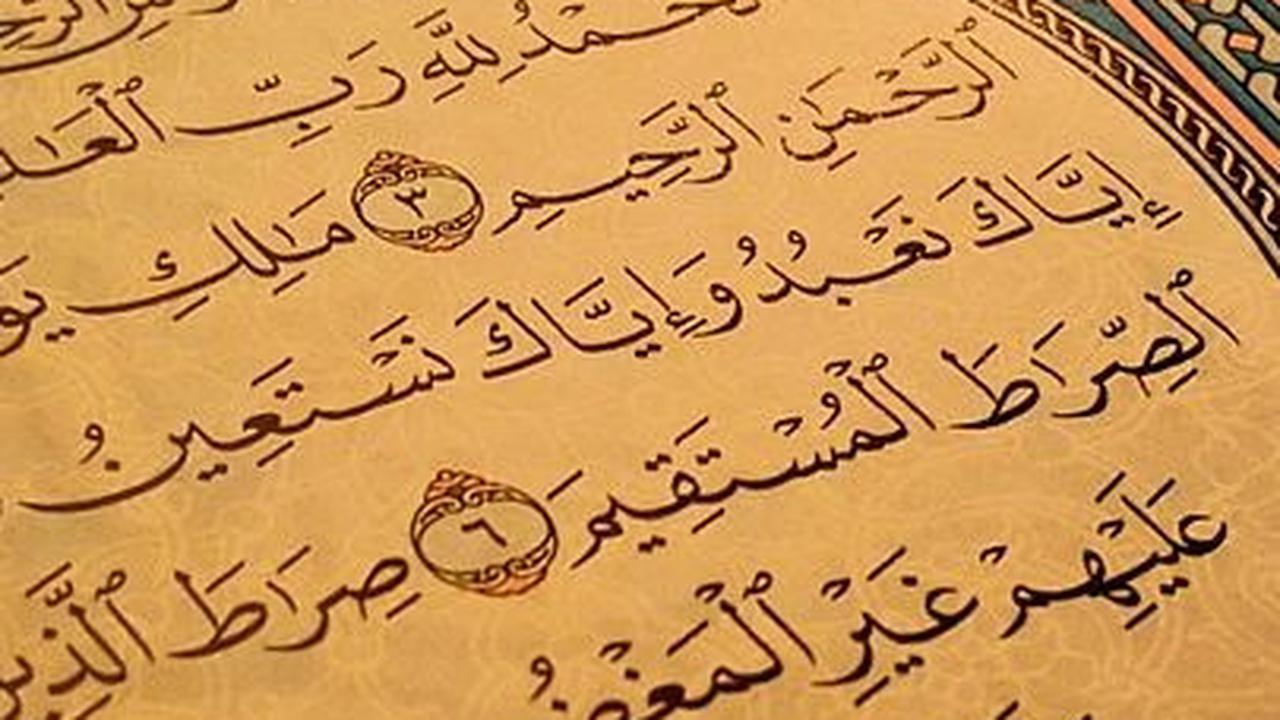 ٱلْحَمْدُ لِلَّهِ رَبِّ ٱلْعَٰلَ
ٱلرَّحْمَٰنِ ٱلرَّحِيمِ ٣ مَٰلِكِ يَو
إِيَّاكَ نَعْبُدُ وَإِيَّاكَ نَسْتَعِينُ
ٱلصِّرَٰطَ ٱلْمُسْتَقِيمَ ٦ صِرَٰطَ ٱلَّذِين
عَلَيْهِمْ غَيْرِ ٱلْمَغْضُ